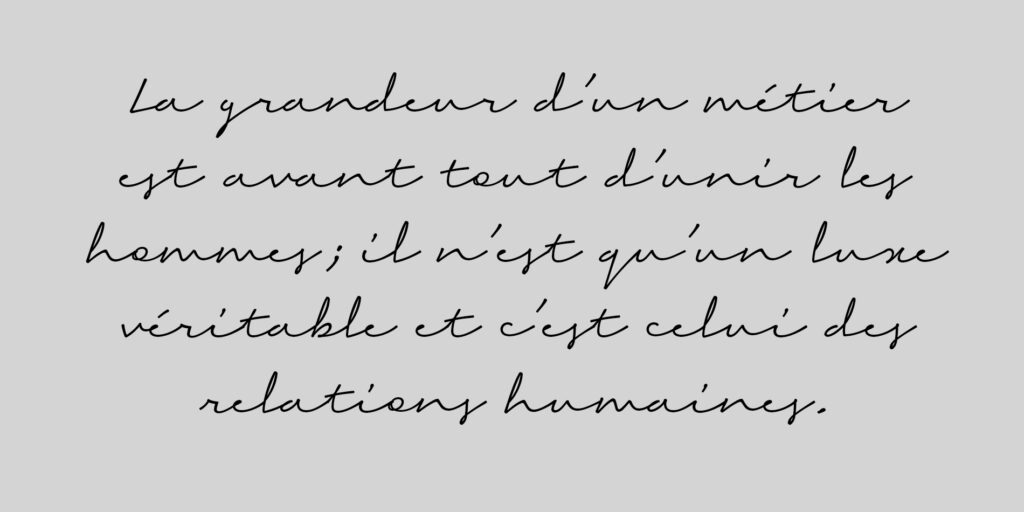 La grandeur d'un métier
est avant tout d'unir les
hommes; il n'est qu'un luxe
véritable et c'est celui des
relations humaines.